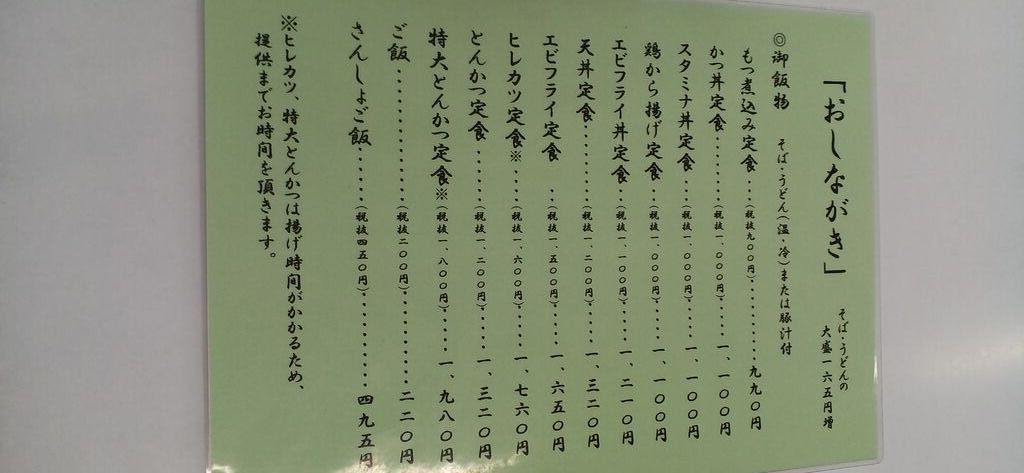 「おしながき」
そば・うどんの
大盛一六五円増
◎御飯物 そば・うどん(温・冷)または豚汁付
もつ煮込み定食‥(税抜九〇〇円)‥‥‥‥‥九九〇円
かつ丼定食‥‥‥‥(税抜一、〇〇〇円)‥‥‥一、一〇〇円
スタミナ丼定食‥(税抜一、〇〇〇円)‥‥‥一、一〇〇円
鶏から揚げ定食‥(税抜一、〇〇〇円)‥‥‥一、一〇〇円
エビフライ丼定食‥(税抜一、一〇〇円)‥‥‥一、二一〇円
天丼定食‥‥‥‥‥(税抜一、二〇〇円)‥‥‥一、三二〇円
エビフライ定食 ‥(税抜一、五〇〇円)‥‥‥一、六五〇円
ヒレカツ定食※‥‥(税抜一、六〇〇円)‥‥‥一、七六〇円
とんかつ定食‥‥‥(税抜一、二〇〇円)‥‥‥一、三二〇円
特大とんかつ定食※(税抜一、八〇〇円)‥‥一、九八〇円
ご飯‥‥‥‥‥‥‥(税抜二〇〇円)‥‥‥‥二二〇円
さんしょご飯‥‥‥(税抜四五〇円)‥‥‥‥四九五円
※ヒレカツ、特大とんかつは揚げ時間がかかるため、
提供までお時間を頂きます。